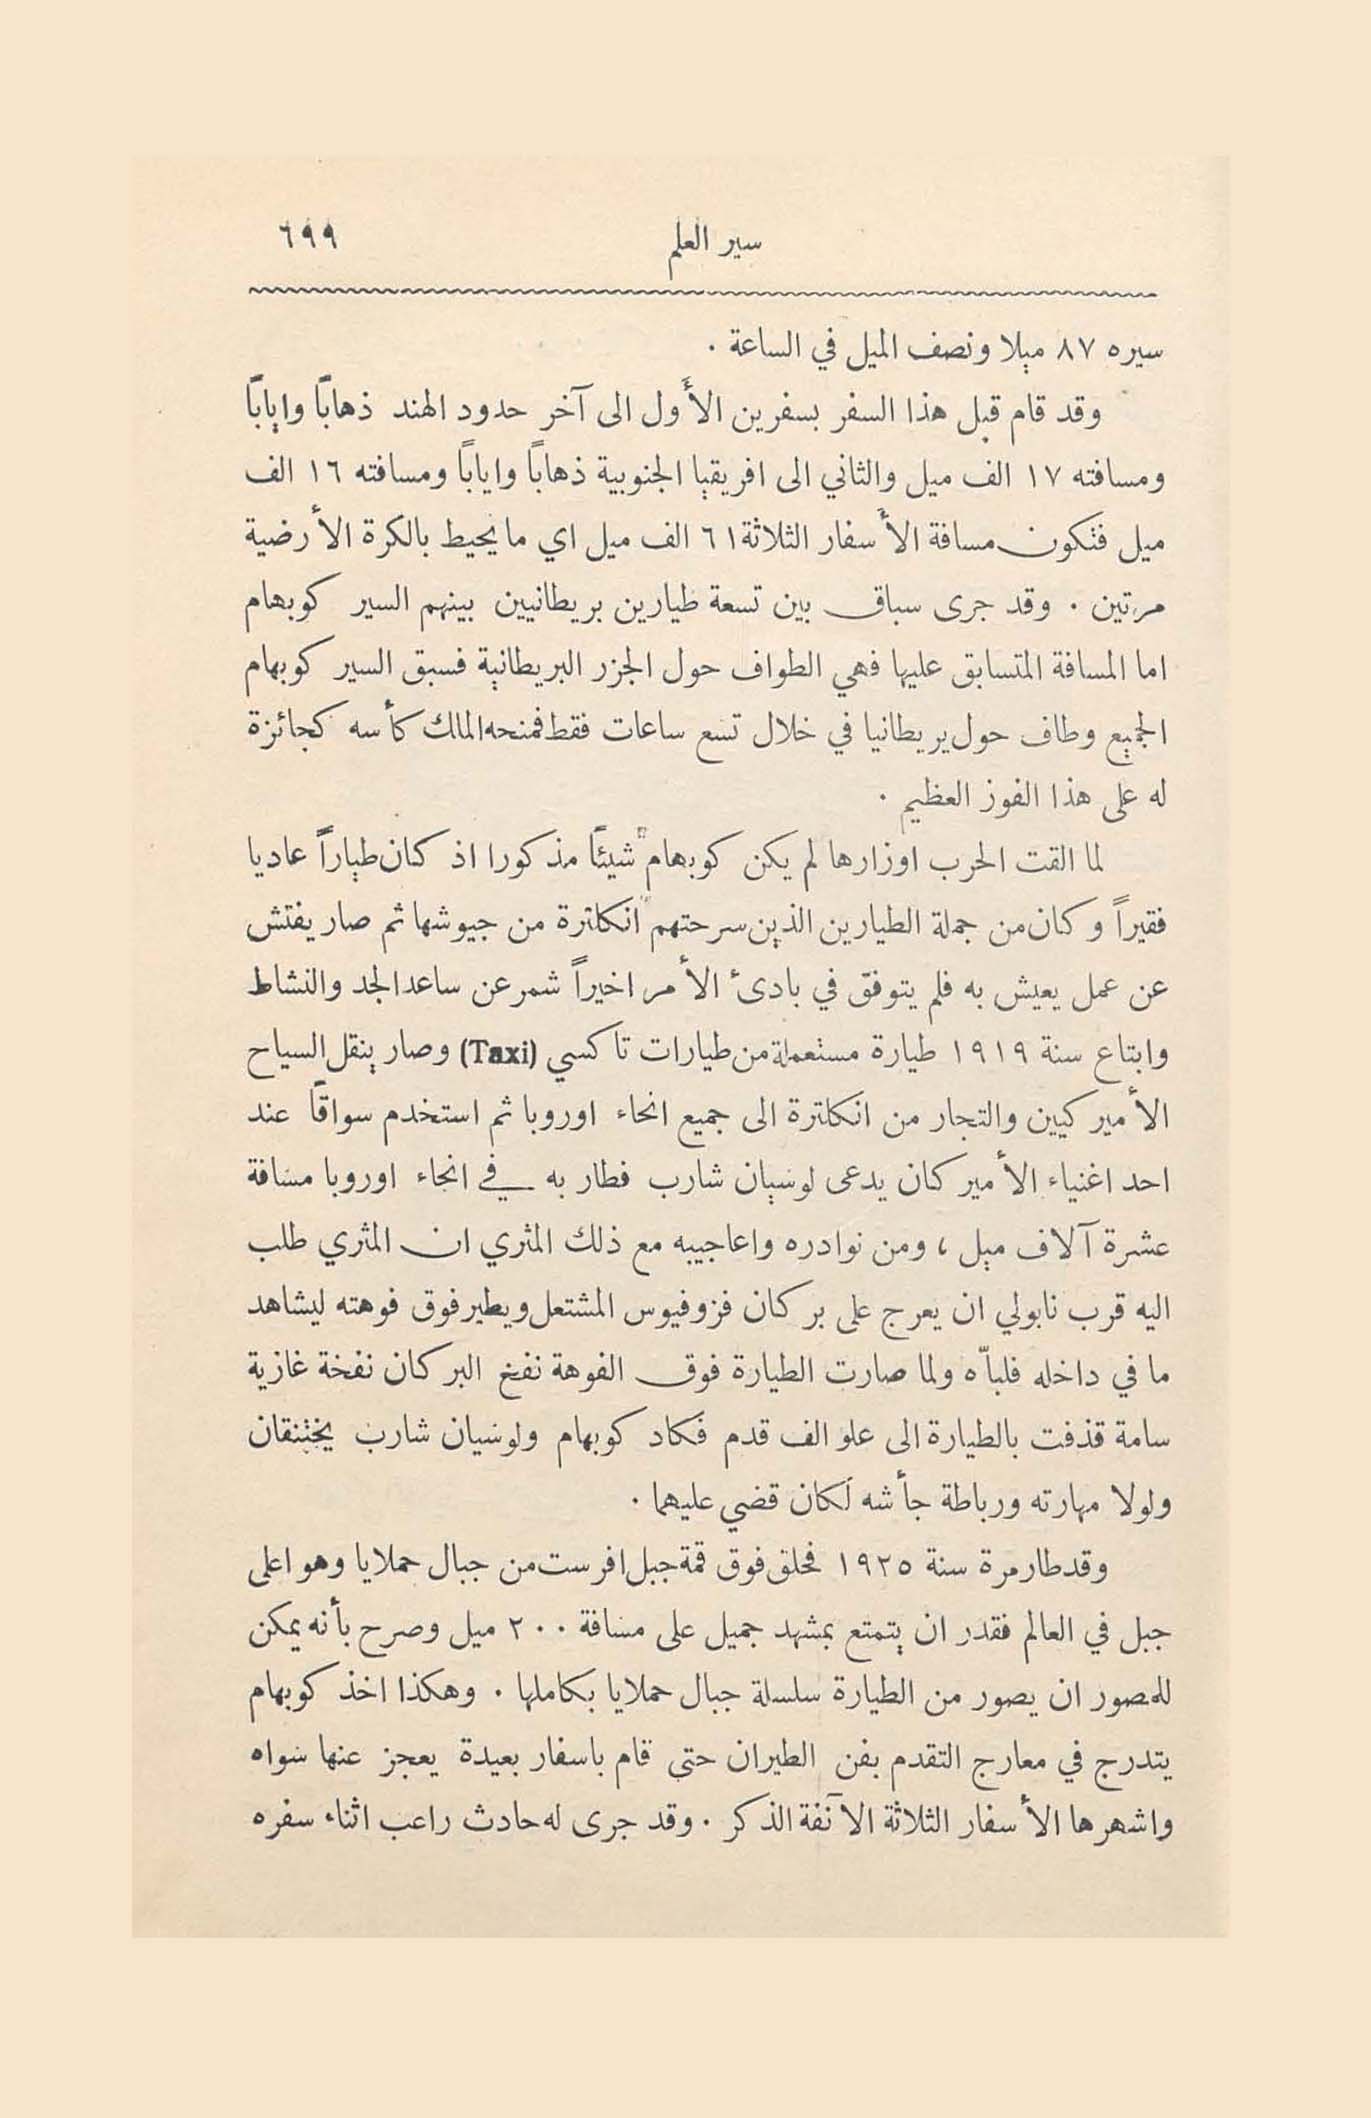 سير العلم ٦٩٩
سيره ٨٧ ميلا ونصف الميل في الساعة ٠
وقد قام قبل هذا السفر بسفرين الأَول الى آخر حدود الهند ذهاباً واياباً
ومسافته ١٧ الف ميل والثاني الى افريقيا الجنوبية ذهاباً واياباً ومسافته ١٦ الف
ميل فتكون مسافة الأَسفار الثلاثة ٦١ الف ميل اي ما يحيط بالكرة الأرضية
مرتين ٠ وقد جرى سباق بين تسعة طيارين بريطانيين بينهم السير كوبهام
اما المسافة المتسابق عليها فهي الطواف حول الجزر البريطانية فسبق السير كوبهام
الجميع وطاف حول بريطانيا في خلال تسع ساعات فقط فمنحه الملك كأسه كجائزة
له على هذا الفوز العظيم ٠
لما القت الحرب اوزارها لم يكن كوبهام شيئاً مذكورا اذ كان طياراً عاديا
فقيراً وكان من جملة الطيارين الذين سرحتهم انكلترة من جيوشها ثم صار يفتش
عن عمل يعيش به فلم يتوفق في بادىء الأمر اخيراً شمر عن ساعد الجد والنشاط
وابتاع سنة ١٩١٩ طيارة مستعملة من طيارات تاكسي (Taxi) وصار ينقل السياح
الأميركيين والتجار من انكلترة الى جميع انحاء اوروبا ثم استخدم سواقاً عند
احد اغنياء الأميركان يدعى لوسيان شارب فطار به في انحاء اوروبا مسافة
عشرة آلاف ميل ، ومن نوادره واعاجيبه مع ذلك المثري ان المثري طلب
اليه قرب نابولي ان يعرج على بركان فزوفيوس المشتعل ويطير فوق فوهته ليشاهد
ما في داخله فلبّاه ولما صارت الطيارة فوق الفوهة نفخ البركان نفخة غازية
سامة قذفت بالطيارة الى علو الف قدم فكاد كوبهام ولوسيان شارب يختنقان
ولولا مهارته ورباطة جأشه لكان قضي عليهما ٠
وقد طار مرة سنة ١٩٢٥ فحلق فوق قمة جبل افرست من جبال حملايا وهو اعلى
جبل في العالم فقدر ان يتمتع بمشهد جميل على مسافة ٢٠٠ ميل وصرح بأنه يمكن
للمصور ان يصور من الطيارة سلسلة جبال حملايا بكاملها ٠ وهكذا اخذ كوبهام
يتدرج في معارج التقدم بفن الطيران حتى قام باسفار بعيدة يعجز عنها سواه
واشهرها الأسفار الثلاثة الآنفة الذكر ٠ وقد جرى له حادث راعب اثناء سفره